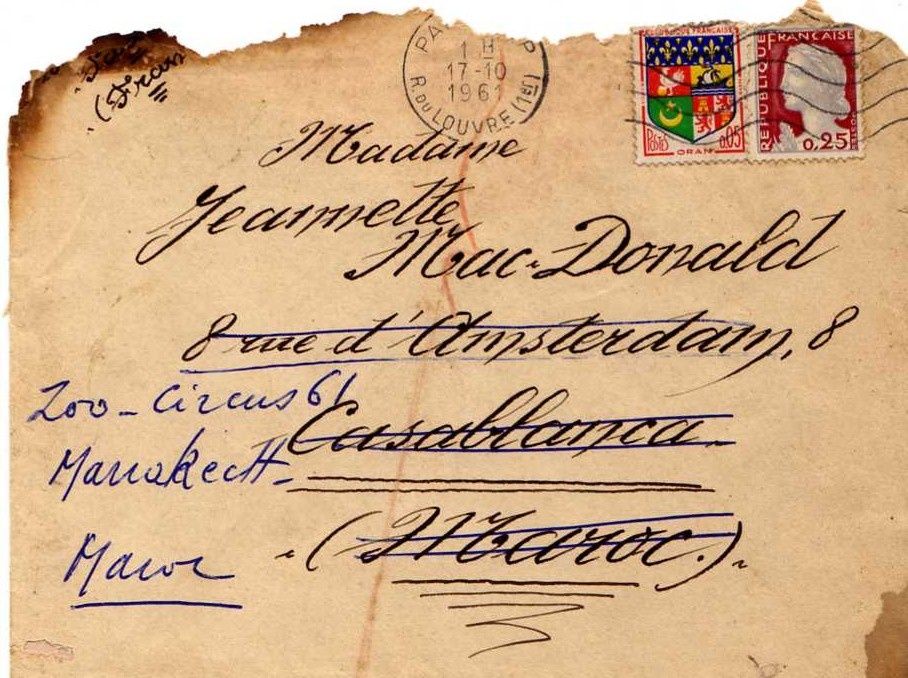 (Fran
PA
1 H
17-10
1961
R. DU LOUVRE (1er)
REPUBLIQUE FRANCAISE
POSTES
0,05
ORAN
REPUBLIQUE
FRANÇAISE
0,25
Madame
Jeannette
Mac-Donald
8 rue d'Amsterdam, 8
Zoo-Circus 61
Casablanca
Marrakech
(Maroc.)
Maroc